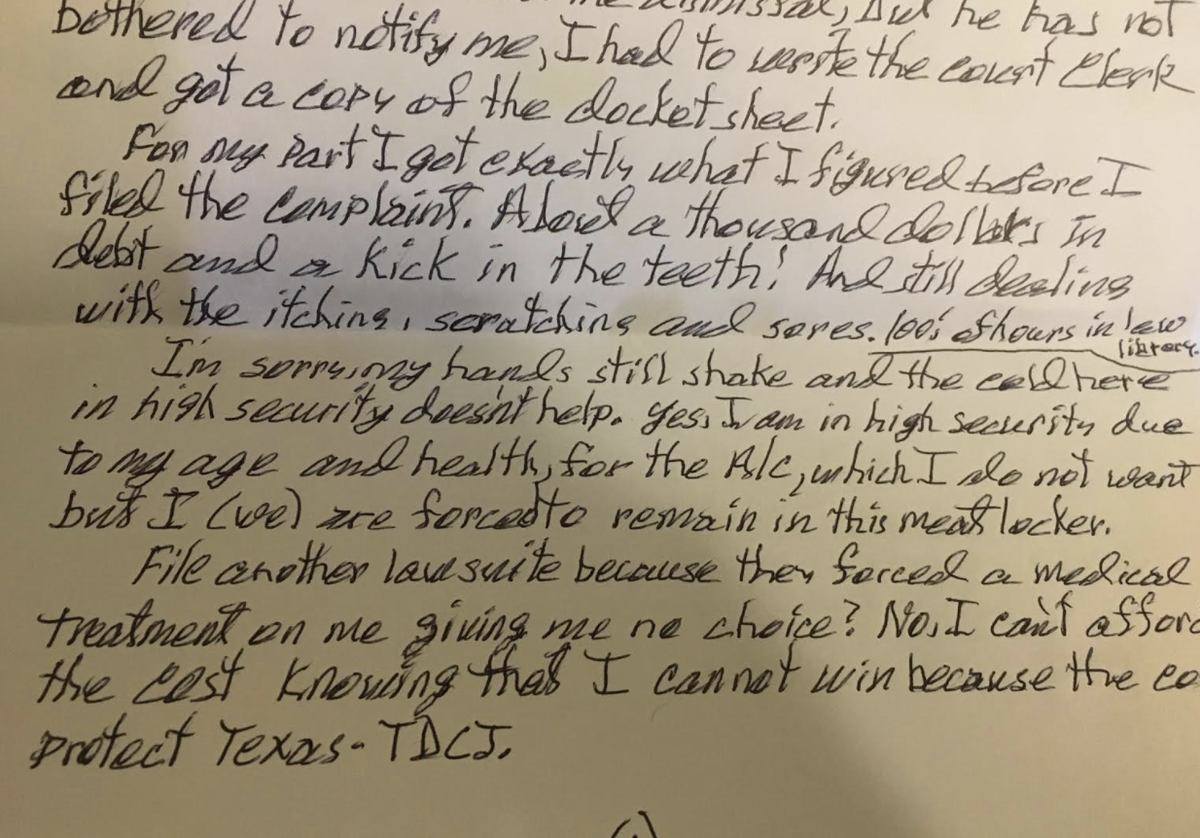 the dismissal, but he has not
bothered to notify me, I had to write the court Clerk
and got a copy of the docket sheet.
For my part I got exactly what I figured before I
filed the complaint. About a thousand dollars in
debt and a kick in the teeth! And still dealing
with the itching, scratching and sores. 100's of hours in law
library.
I'm sorry, my hands still shake and the cold here
in high security doesn't help. Yes, I am in high security due
to my age and health, for the A/c, which I do not want
but I (we) are forced to remain in this meat locker.
File another lawsuite because they forced a medical
treatment on me giving me no choice? No, I can't affor
the cost knowing that I cannot win because the co
protect Texas-TDCJ.